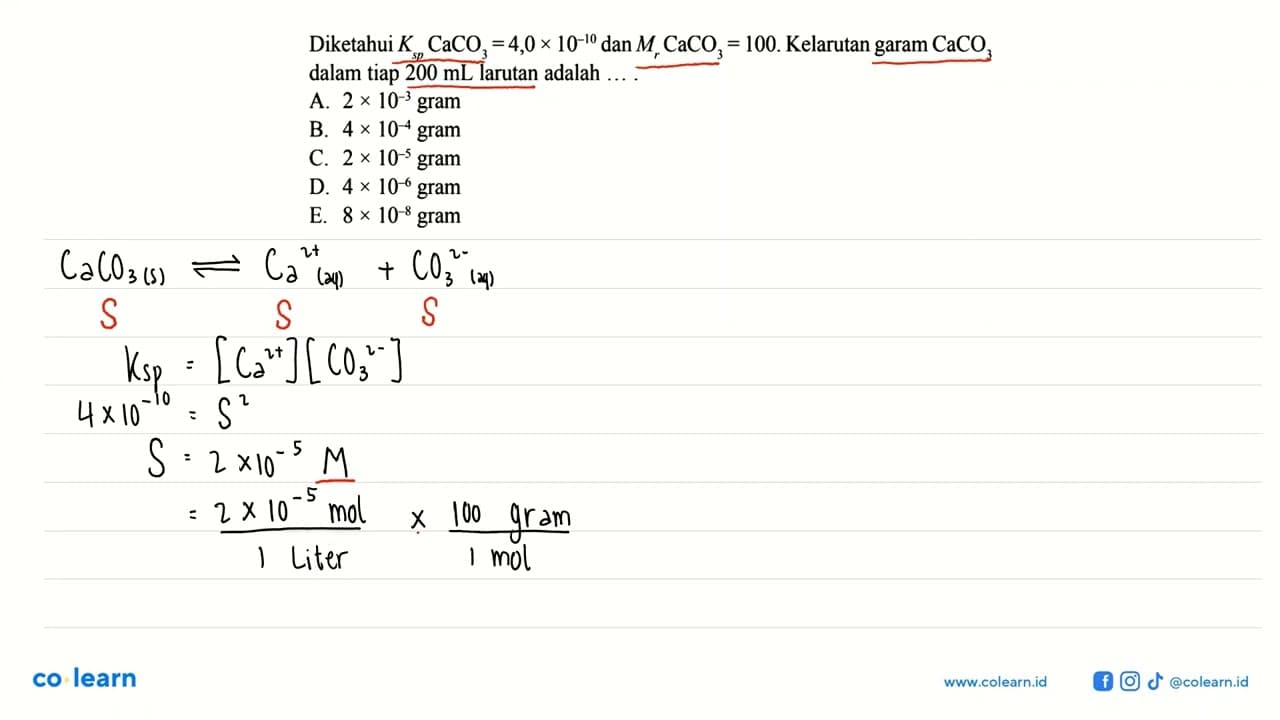 Diketahui Ksp CaCO₃ = 4,0 × 10⁻¹⁰ dan Mr CaCO₃ = 100. Kelarutan garam CaCO₃
dalam tiap 200 mL larutan adalah ... .
A. 2 × 10⁻³ gram
B. 4 × 10⁻⁴ gram
C. 2 × 10⁻⁵ gram
D. 4 × 10⁻⁶ gram
E. 8 × 10⁻⁸ gram
CaCO₃(s) ⇌ Ca²⁺(aq) + CO₃²⁻(aq)
S S S
Ksp = [Ca²⁺][CO₃²⁻]
4 × 10⁻¹⁰ = S²
S = 2 × 10⁻⁵ M
= 2 × 10⁻⁵ mol × 100 gram
1 Liter 1 mol
co·learn
www.colearn.id @colearn.id